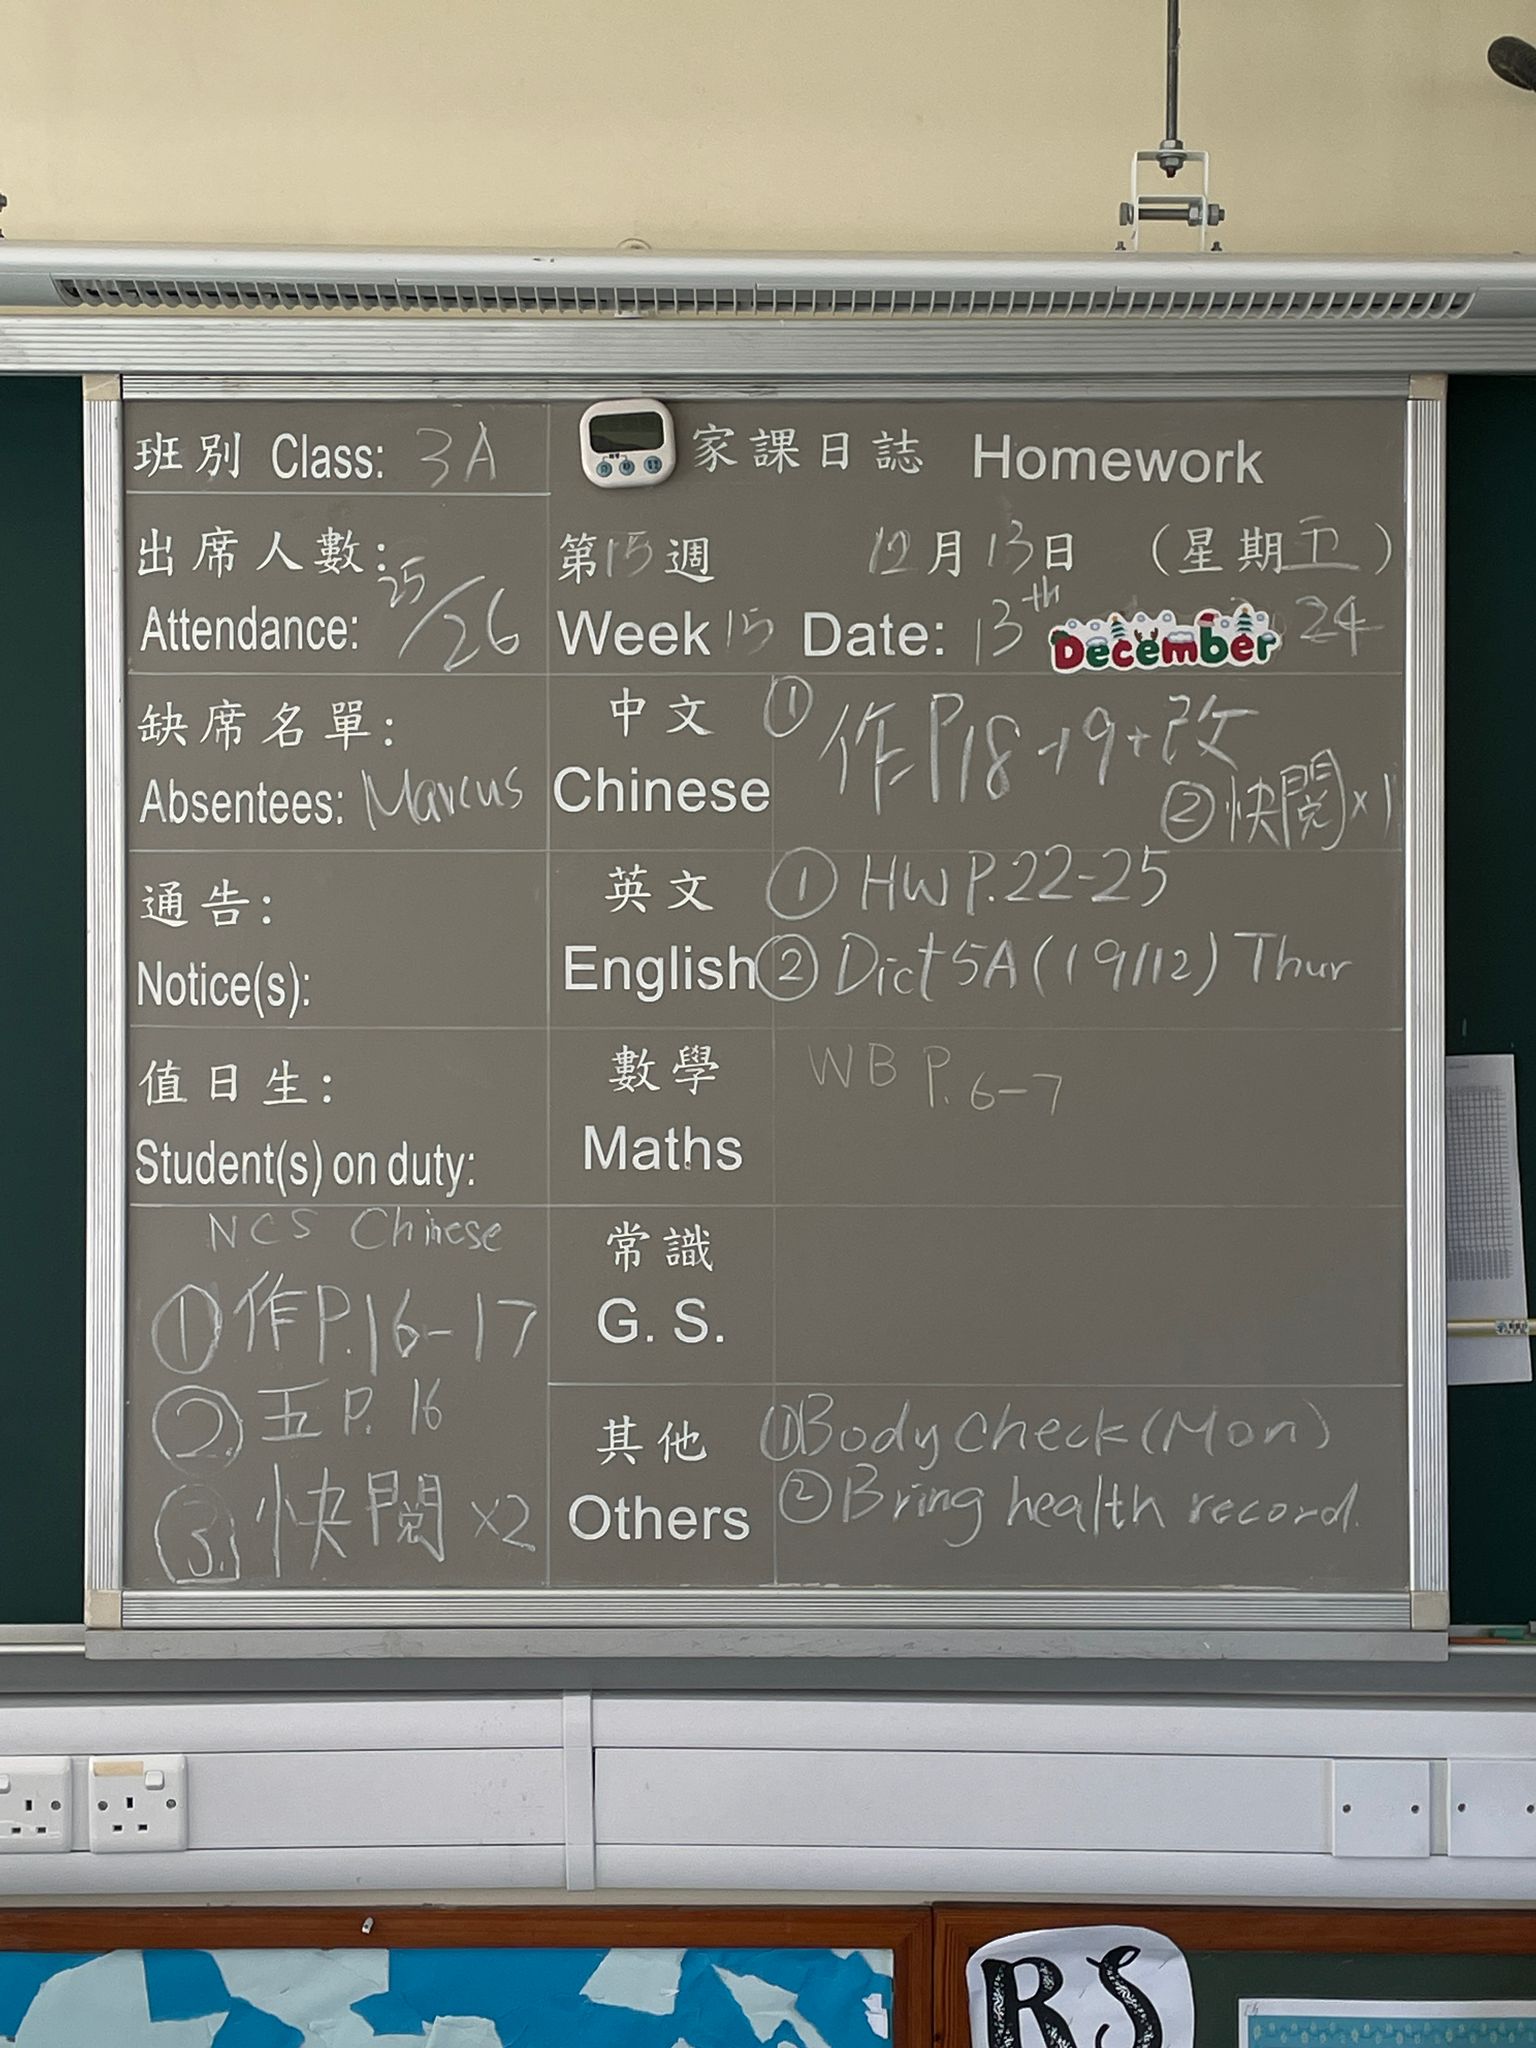 班別 Class: 3A
家課日誌 Homework
出席人數:
Attendance: 25/26
第15週 12月13日 (星期五)
Week 15 Date: 13th December 24
缺席名單:
Absentees: Marcus
中文
Chinese
① 作P18-19+改
② 快閱×1
通告:
Notice(s):
英文
English
① HW P.22-25
② Dict 5A (19/12) Thur
值日生:
Student(s) on duty:
數學
Maths
WB P.6-7
NCS Chinese
① 作P.16-17
② 五P.16
③ 快閱×2
常識
G. S.
其他
Others
① Body Check (Mon)
② Bring health record.
RS